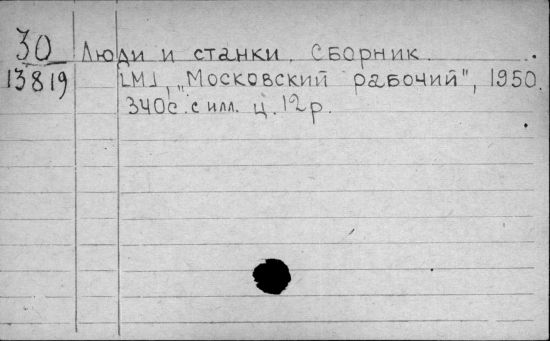 30 Люди и станки. Сборник.
13819 [М], „Московский рабочий", 1950.
340с. с илл. ц. 12р.